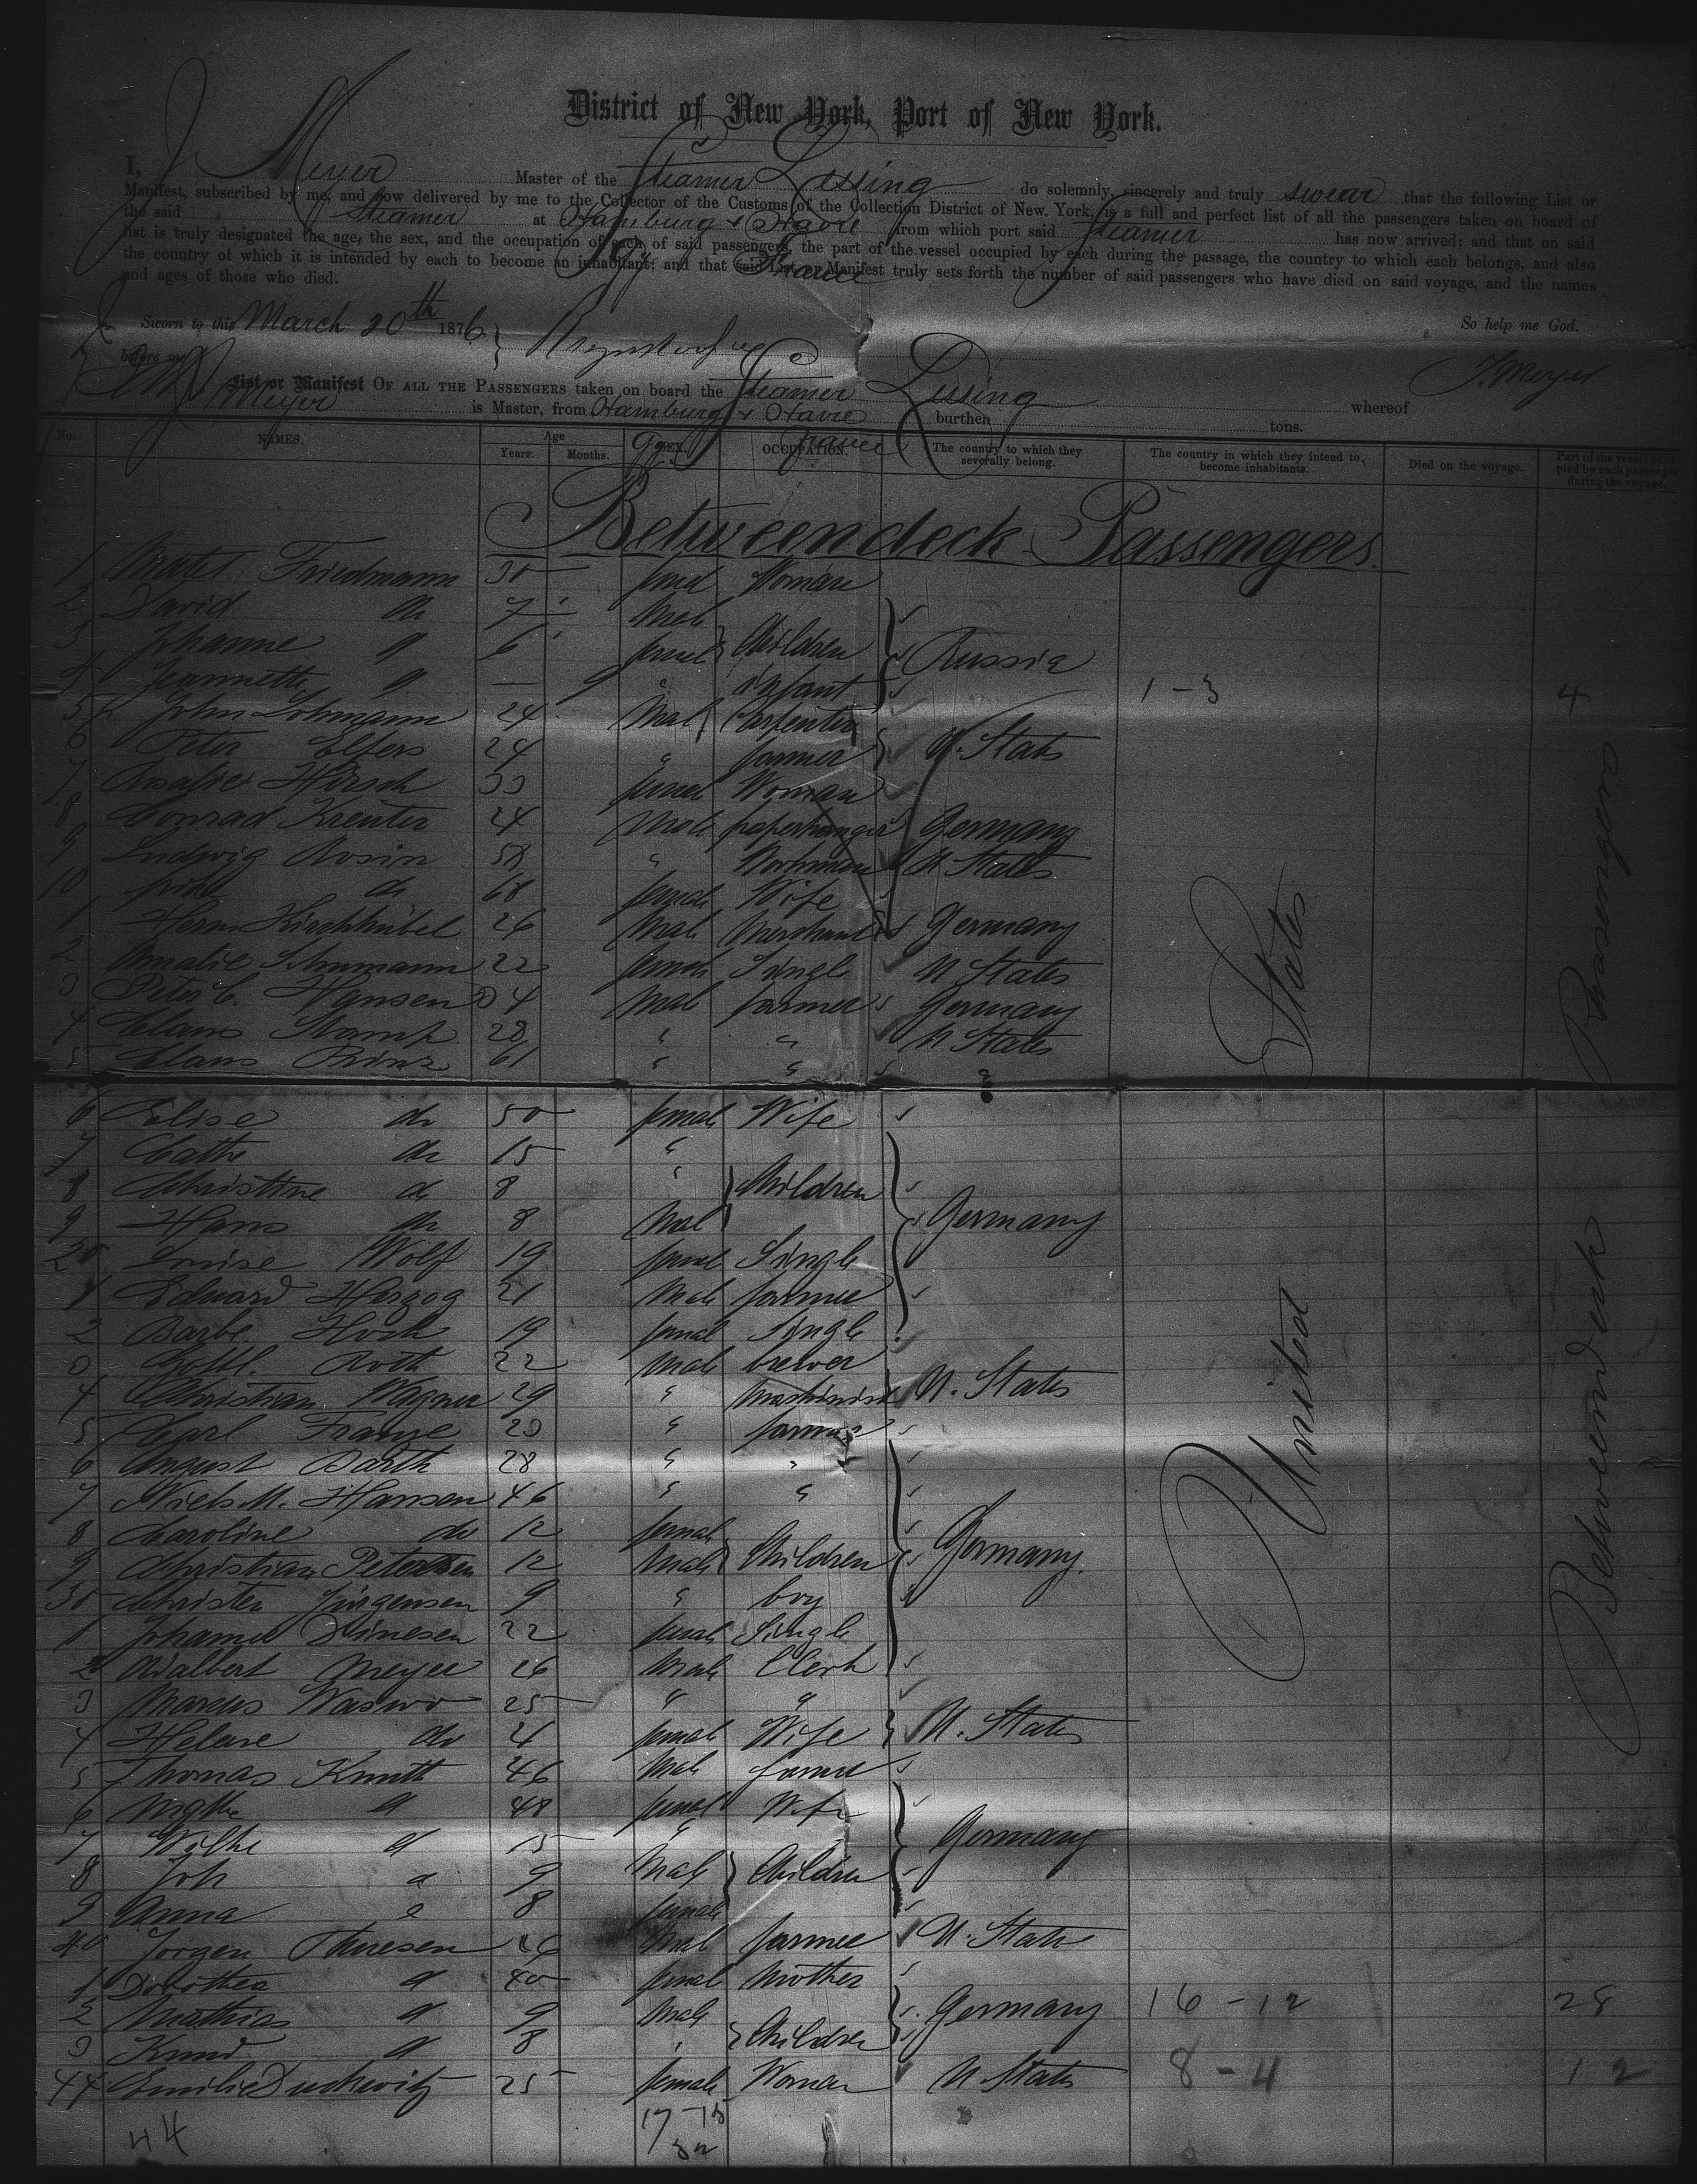 District of New York, Port of New York.
I, J. Meyer Master of the Steamer Lessing do solemnly, sincerely and truly swear that the following List or
Manifest, subscribed by me, and now delivered by me to the Collector of the Customs of the Collection District of New York, is a full and perfect list of all the passengers taken on board of
the said Steamer at Hamburg & Havre from which port said Steamer has now arrived; and that on said
list is truly designated the age, the sex, and the occupation of each of said passengers, the part of the vessel occupied by each during the passage, the country to which each belongs, and also
the country of which it is intended by each to become an inhabitant; and that said List or Manifest truly sets forth the number of said passengers who have died on said voyage, and the names
and ages of those who died.
So help me God.
Sworn to this March 20th 1876
before me
J. Meyer
List or Manifest OF ALL THE PASSENGERS taken on board the Steamer Lessing whereof
Meyer is Master, from Hamburg & Havre burthen tons.
No. NAMES. Age Years. Months. SEX. OCCUPATION. The country to which they severally belong. The country in which they intend to become inhabitants. Died on the voyage. Part of the vessel occupied by each passenger during the voyage.
Betweendeck Passengers.
1 Friedmann 30 Woman
2 David do 7 Male
3 Johanne do 6 female Children Russia
4 Jeannette do — 9 " infant 1-3 4
5 John Lohmann 24 Male Carpenter
6 Peter Elfers 24 " farmer U. States
7 Rosalie Hirsch 33 female Woman
8 Conrad Kreuter 24 Male paperhanger Germany
9 Ludwig Rosin 58 " Workman U. States
10 do 68 female Wife
1 Herm Kirschhübel 26 Male Merchant Germany
2 Amalie Schumann 22 female Single U States
3 Peter C. Hansen 34 Male farmer Germany
4 Claus Stamp 28 " " U. States
5 Claus Prinz 61 " "
6 Elise do 50 female Wife
7 Cathe do 15 "
8 Christine do 8 " Children
9 Hans do 8 Male Germany
20 Louise Wolf 19 female Single
1 Eduard Herzog 21 Male farmer
2 Barbe Hoch 19 female Single
3 Gottl. Roth 22 Male brewer
4 Christian Wagner 29 " Mashinist U. States
5 Carl Franze 23 " farmer
6 August Barth 28 " "
7 Niels M. Hansen 46 " "
8 Caroline do 12 female
9 Christian Petersen 12 Male Children Germany.
30 Christen Jürgensen 9 " boy
1 Johanne Dinesen 22 female Single
2 Adalbert Meyer 26 Male Clerk
3 Marcus Waswo 25 " "
4 Helene do 4 female Wife U. States
5 Thomas Knuth 46 Male farmer
6 do 48 female Wife
7 Wilhe do 15 " Germany
8 Joh do 9 Male Children
9 Anna do 8 female
40 Jorgen Thuesen 26 Male farmer U. States
1 Dorothea do 40 female Mother
2 Mathias do 9 Male Germany 16-12 28
3 Knud do 8 " Children
44 Emilie Duckwitz 25 female Woman U States 8-4 12
44 17-15
United States
Betweendeck Passengers